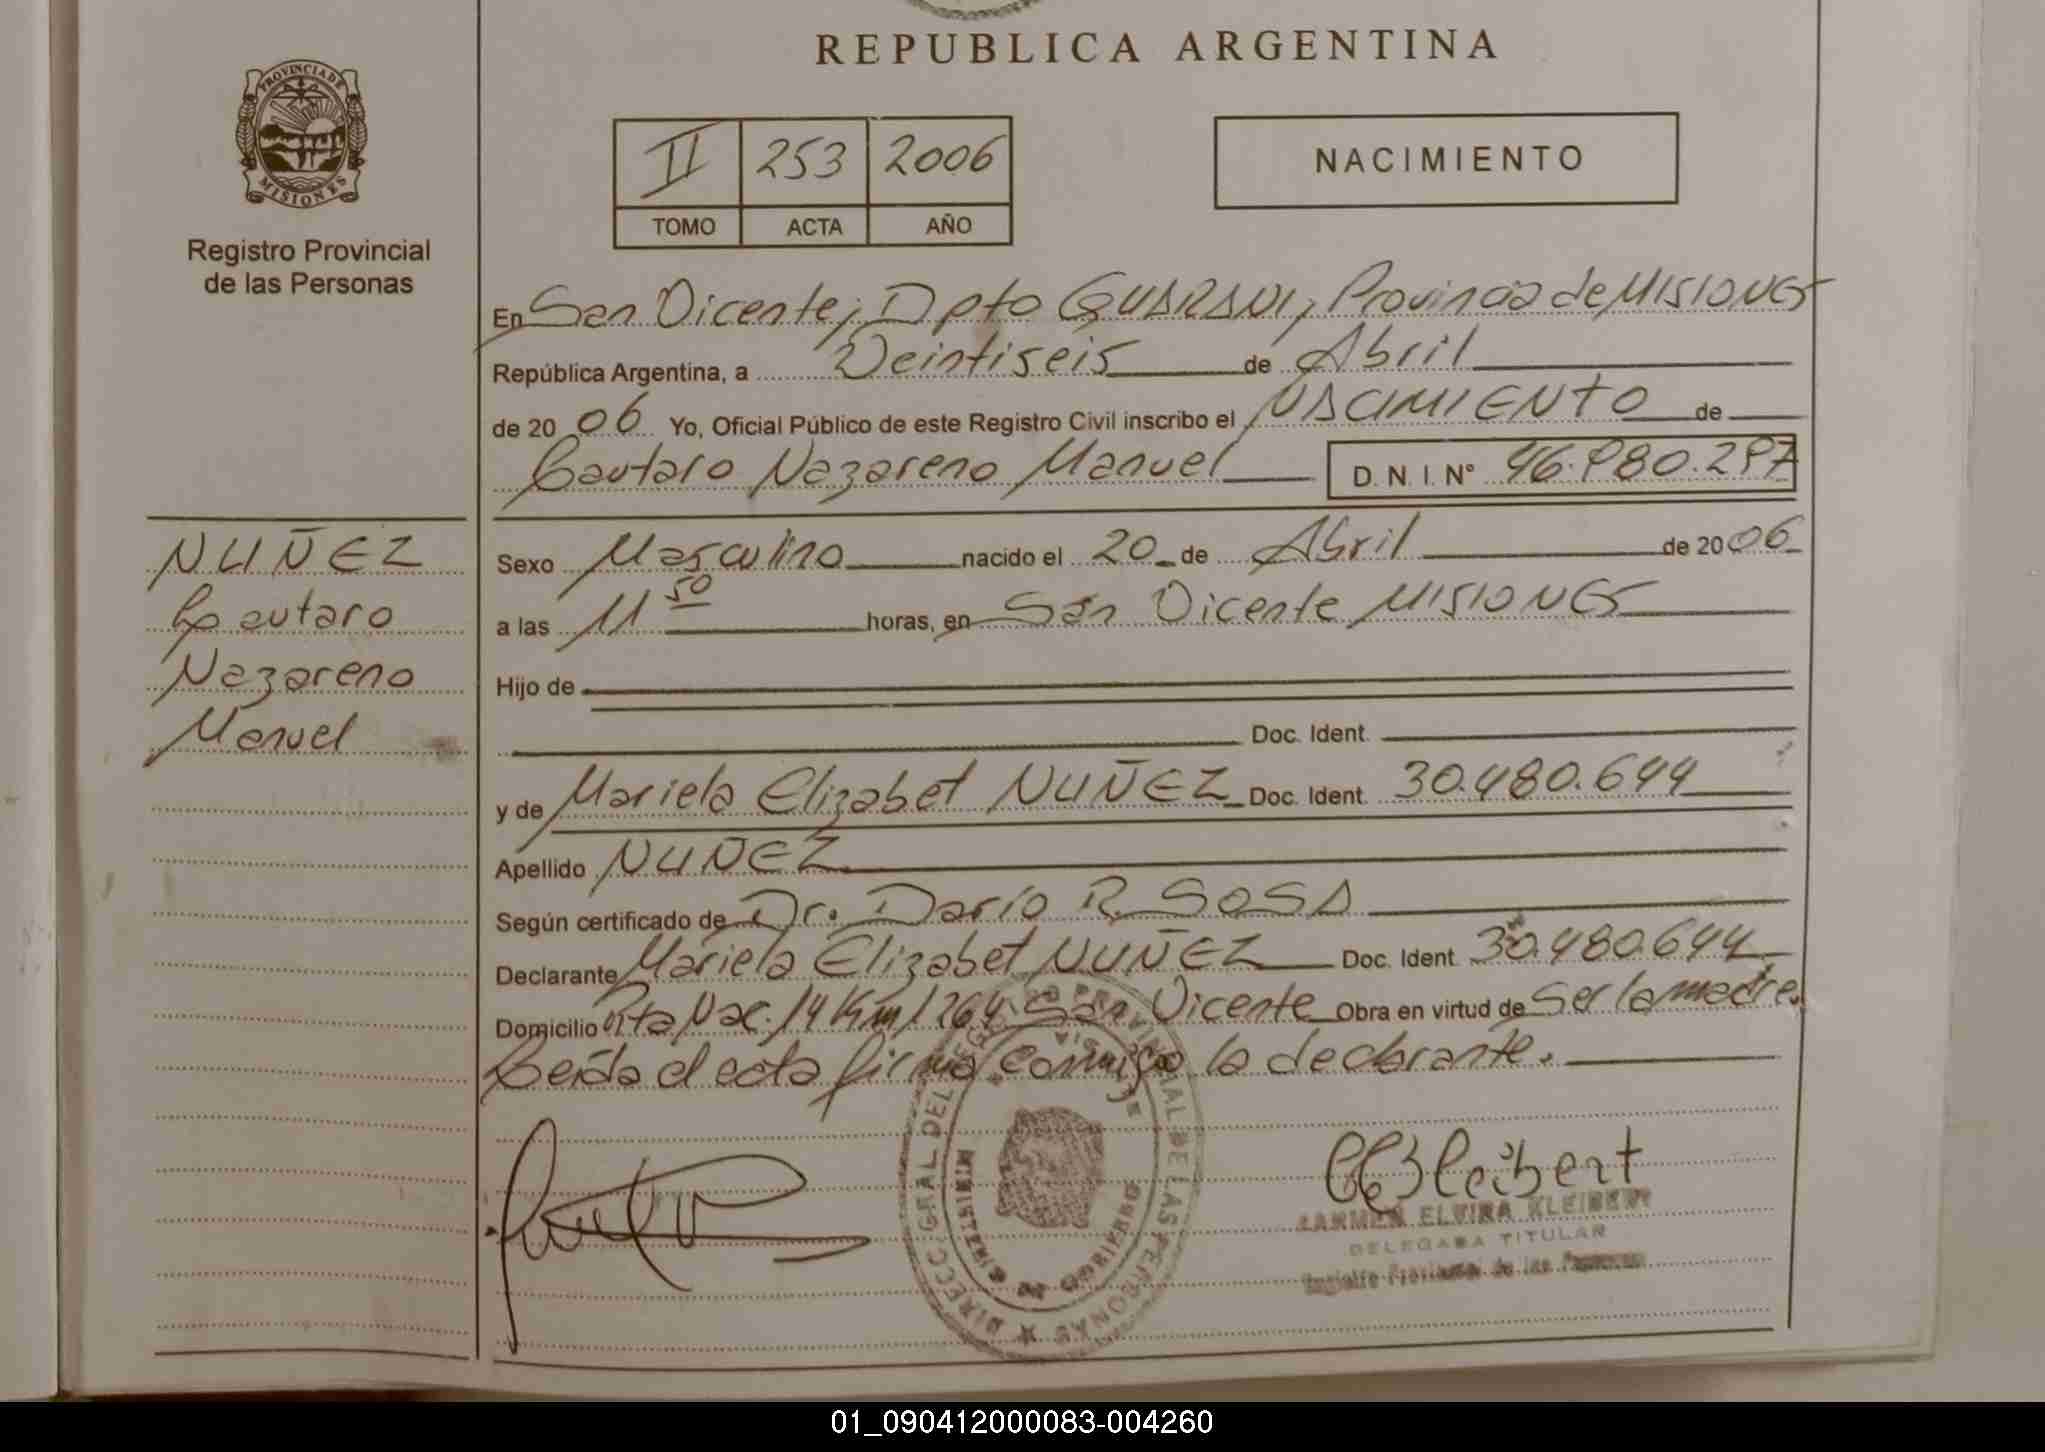 REPUBLICA ARGENTINA
PROVINCIA DE
MISIONES
Registro Provincial
de las Personas
II 253 2006
TOMO ACTA AÑO
NACIMIENTO
En San Vicente, Dpto GUARANI, Provincia de MISIONES
República Argentina, a Veintiseis de Abril
de 2006 Yo, Oficial Público de este Registro Civil inscribo el NACIMIENTO de
Lautaro Nazareno Manuel D. N. I. N°
NUÑEZ
Lautaro
Nazareno
Manuel
Sexo Masculino nacido el 20 de Abril de 2006
a las 11 50 horas, en San Vicente MISIONES
Hijo de
Doc. Ident.
y de Mariela Elizabet NUÑEZ Doc. Ident. 30.480.644
Apellido NUÑEZ
Según certificado de Dr. Darío R. SOSA
Declarante Mariela Elizabet NUÑEZ Doc. Ident. 30.480.644
Domicilio Rta Nac. 14 Km 1264 San Vicente Obra en virtud de Ser la madre.
Leída el acta firma conmigo la declarante.
DIRECC. GRAL DEL REGISTRO PROVINCIAL DE LAS PERSONAS
CeKleibert
CARMEN ELVIRA KLEIBERT
DELEGADA TITULAR
Registro Provincial de las Personas
01_090412000083-004260